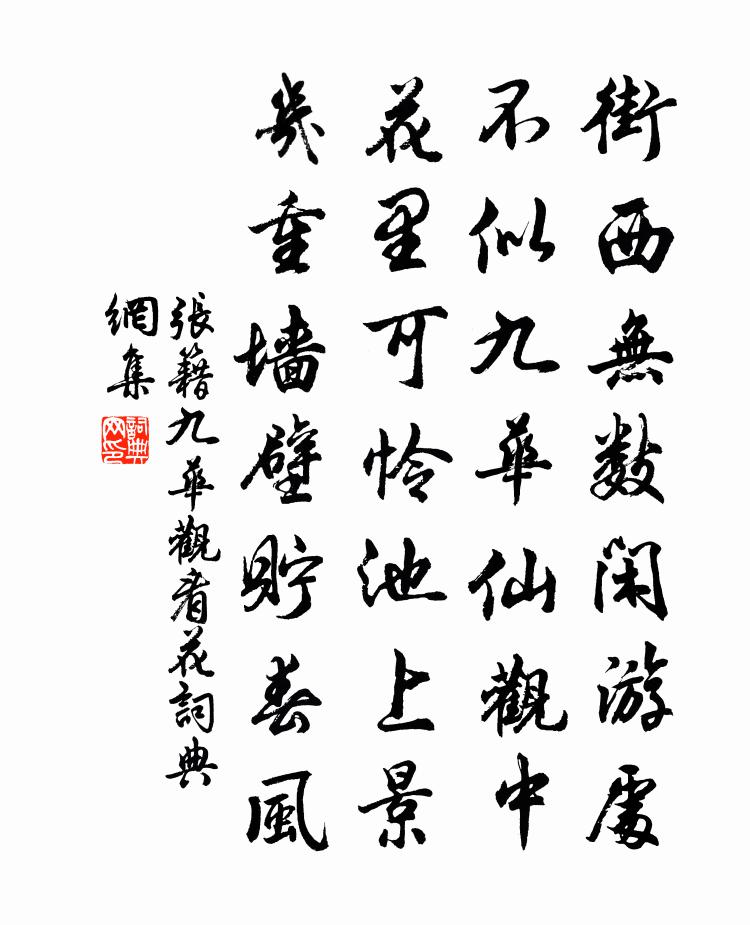 街西無數閑游處
不似九華仙觀中
花里可怜池上景
幾重墙壁貯春風
張籍九華觀看花詞典
網集
詞典网印